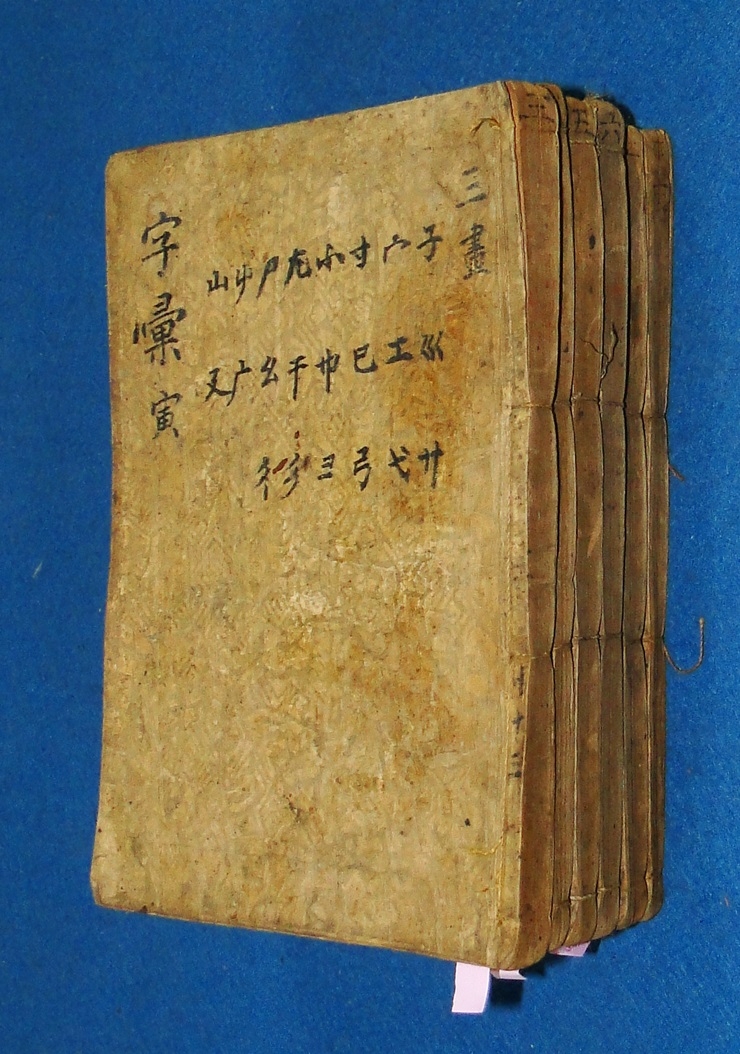 三畫
子宀寸小尢尸屮山
巛工巳巾干幺广廴
廾弋弓彐彡彳
字彙寅
三
五
六